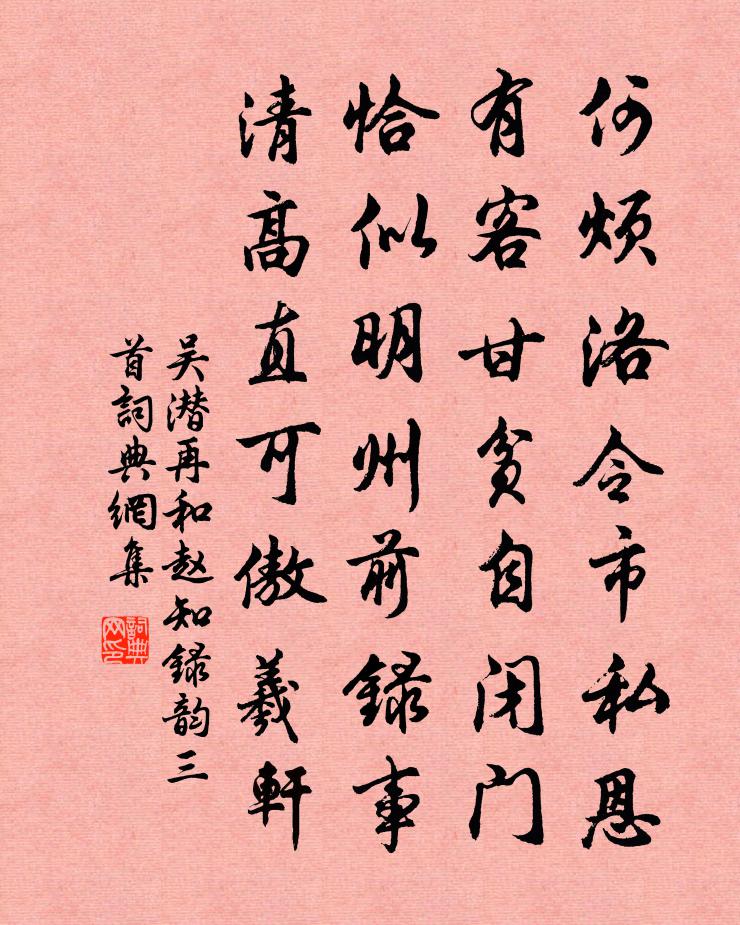 何烦洛令市私恩
有客甘贫自闭门
恰似明州前録事
清高直可傲羲軒
吴潜再和赵知録韵三
首詞典網集
詞典
网印